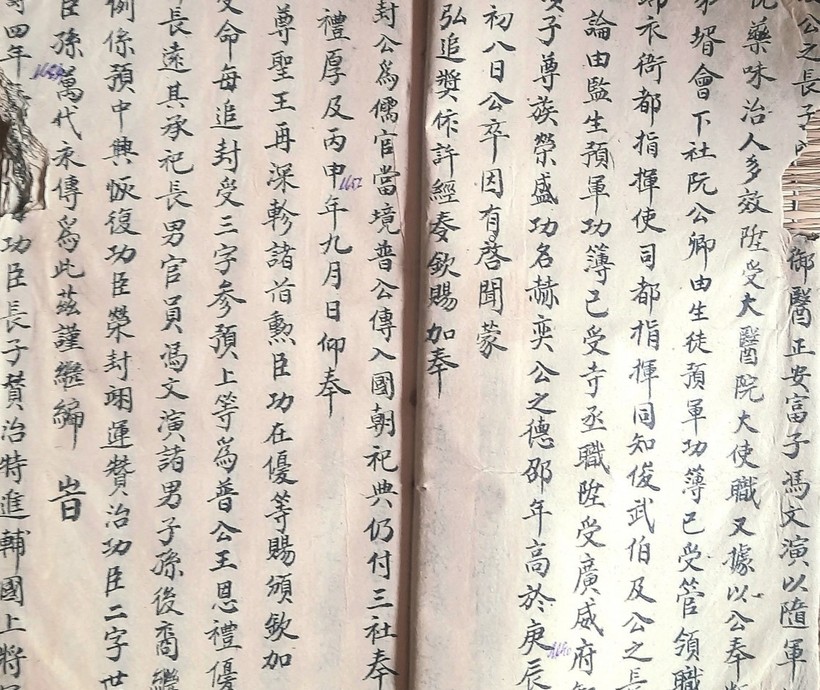 公之長子 御醫正安富子馮文演以隋軍
藥味治人多效陞受大醫院大使職又據以公奉
壻會下社阮公卿由生徒預軍功簿已受管領職
衣衙都指揮使司都指揮同知俊武伯及公之長
論由監生預軍功簿已受寺丞職陞受廣威府
子尊族榮盛功名赫奕公之德邵年高於庚辰
1640
初八日公卒因有啓聞蒙
弘追獎依許經奏欽賜加奉
封公爲儒官當境普公傳入國朝祀典仍付三社奉
禮厚及丙申年九月日仰奉
1652
尊聖王再深軫諸首勳臣功在優等賜頒欽加
受命每追封受三字參預上等爲普公王恩禮優
長遠其承祀長男官員馮文演諸男子孫後裔繼
例係預中興恢復功臣榮封翊運贊治功臣二字世
臣孫萬代永傳爲此茲謹繼編 旹
四年 功臣長子贊治特進輔國上將